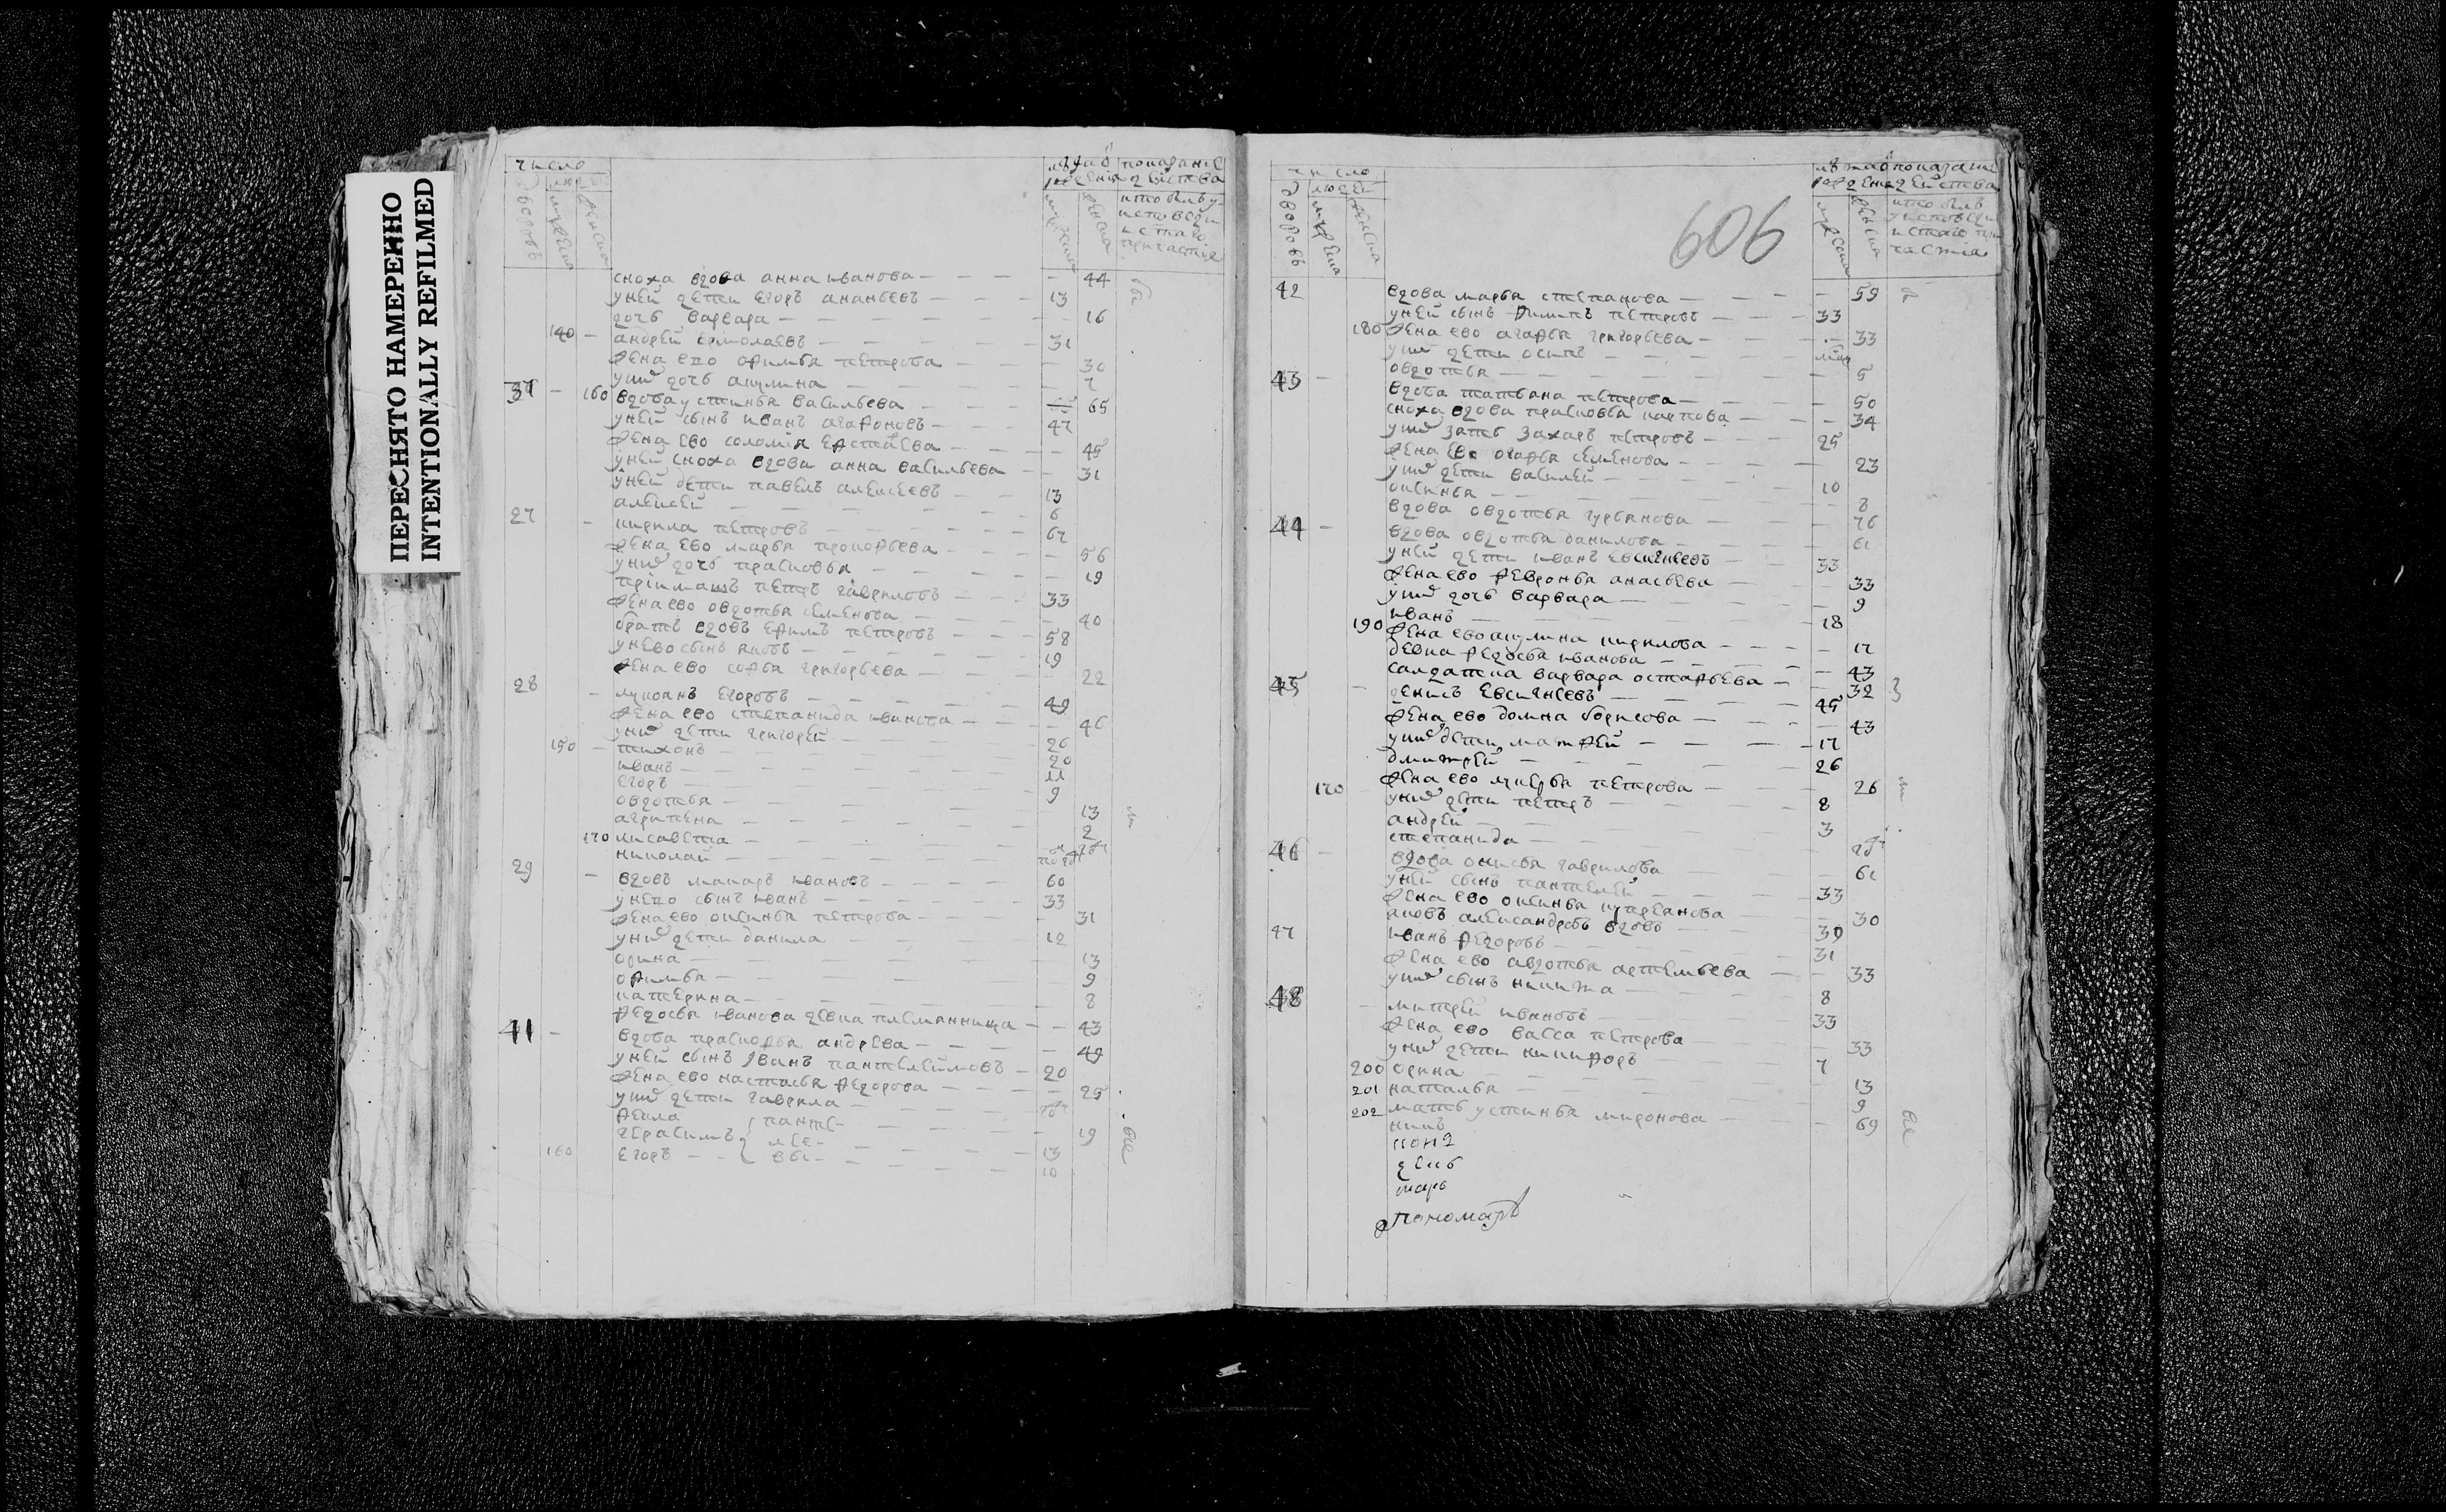 ПЕРЕСНЯТО НАМЕРЕННО
INTENTIONALLY REFILMED
число
дворовъ
людей
мужеска
женска
показание
мужеска
женска
сноха вдова анна иванова 44
уней дети егоръ ананьевъ 13
дочь варвара 16
140 андрей ермолаевъ 31
жена ево офимья петрова 30
уних дочь акулина 7
37 160 вдова устинья васильева 65
уней сынъ иванъ агафоновъ 47
жена ево соломия 45
уней сноха вдова анна васильева 31
уней дети павелъ алексеевъ 13
алексей 6
27 кирила петровъ 67
жена ево марья прокофьева 56
уних дочь прасковья 19
приимашъ петръ гавриловъ 33
жена ево овдотья семенова 40
братъ вдовъ ефимъ петровъ 58
унево сынъ яковъ 19
жена ево софья григорьева 22
28 лукоянъ егоровъ 49
жена ево степанида иванова 46
уних дети григорей 26
150 тихонъ 20
иванъ 11
егоръ 9
овдотья 13
агрипена 2
170 лисавета
николай
29 вдовъ макаръ ивановъ 60
унево сынъ иванъ 33
жена ево оксинья петрова 31
уних дети данила 12
орина 13
офимья 9
катерина 8
федосья иванова девка племянница 43
41 вдова прасковья андреева 49
уней сынъ иванъ пантелеймовъ 20
жена ево настасья федорова 25
уних дети гаврила
фекла 19
герасимъ 13
160 егоръ 10
606
число
дворовъ
людей
мужеска
женска
мужеска
женска
42 вдова марья степанова 59
уней сынъ филипъ петровъ 33
180 жена ево агафья григорьева 33
уних дети осипъ
овдотья 5
43 вдова татьяна петрова 50
сноха вдова прасковья карпова 34
уних зять захаръ петровъ 25
жена ево агафья семенова 23
уних дети василей 10
оксинья 8
вдова овдотья гурьянова 76
44 вдова овдотья данилова 61
уней дети иванъ евсигнеевъ 33
жена ево февронья анасьева 33
уних дочь варвара 9
иванъ 18
190 жена ево акулина кирилова 17
девка федосья иванова 43
салдатка варвара остафьева 32
45 денисъ евсигнеевъ 45
жена ево домна борисова 43
уних дети матфей 17
дмитрей 26
жена ево лукерья петрова 26
170 уних дети петръ 8
андрей 3
степанида
46 вдова онисья гаврилова 61
уней сынъ пантелей 33
жена ево оксинья куприанова 30
яковъ александровъ вдовъ 39
47 иванъ федоровъ 31
жена ево авдотья артемьева 33
уних сынъ никита 8
48 митрей ивановъ 33
жена ево васса петрова 33
уних дети никифоръ 7
200 орина 13
201 наталья 9
202 мать устинья миронова 69
пономарь